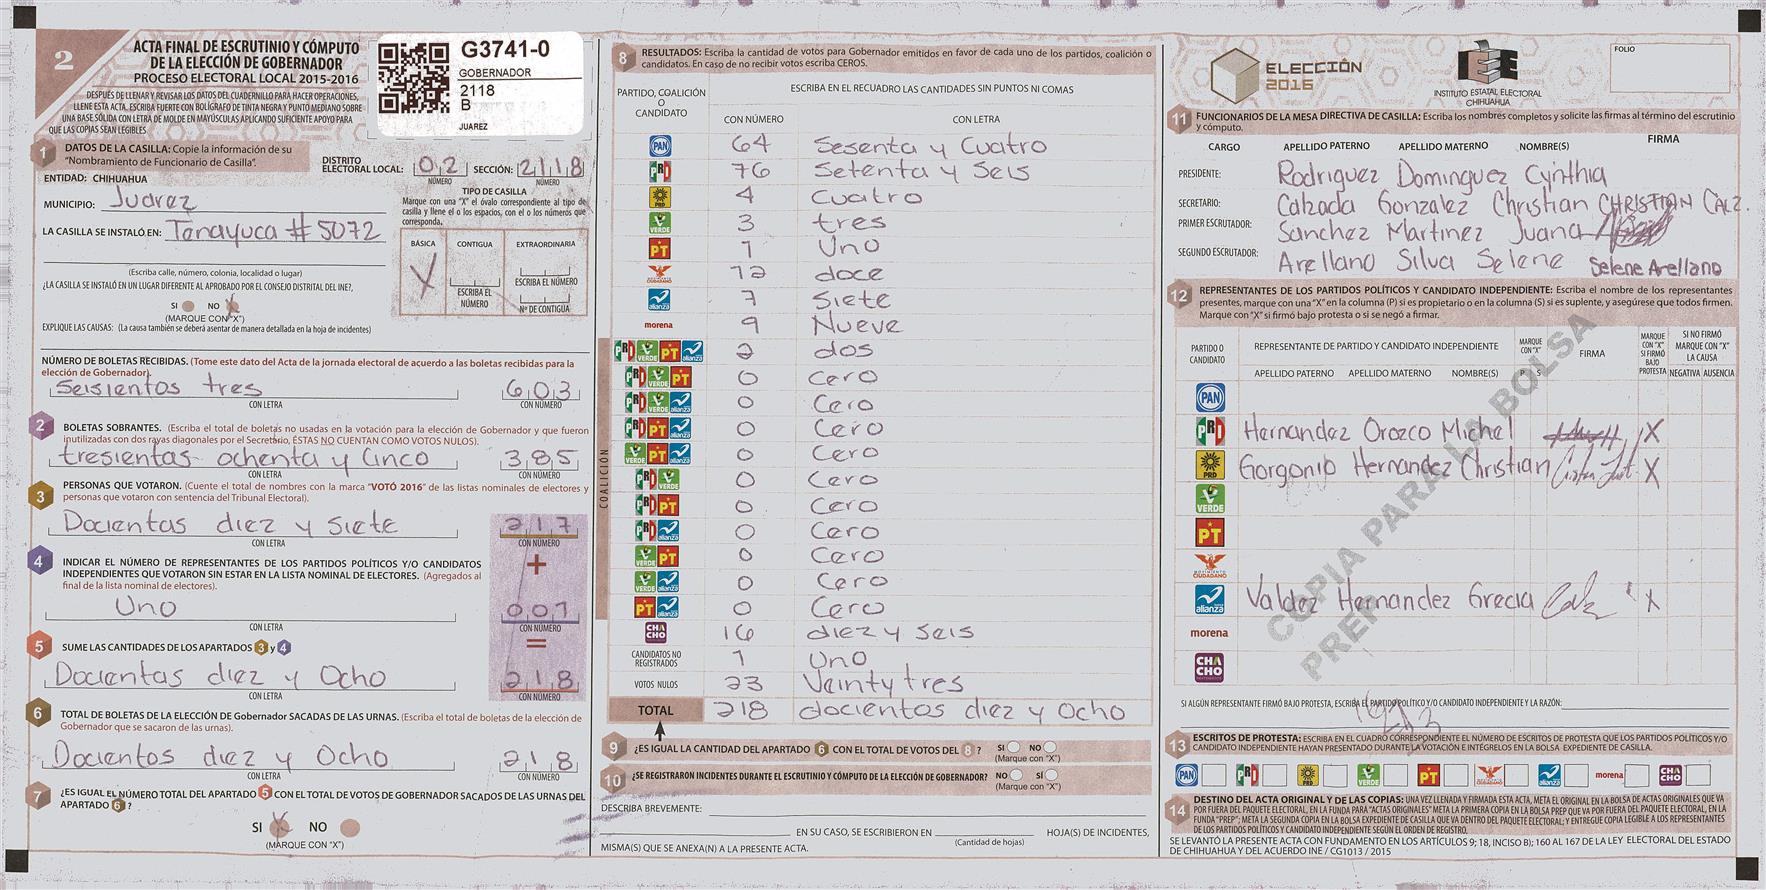 2
ACTA FINAL DE ESCRUTINIO Y CÓMPUTO
DE LA ELECCIÓN DE GOBERNADOR
PROCESO ELECTORAL LOCAL 2015-2016
DESPUÉS DE LLENAR Y REVISAR LOS DATOS DEL CUADERNILLO PARA HACER OPERACIONES,
LLENE ESTA ACTA. ESCRIBA FUERTE CON BOLÍGRAFO DE TINTA NEGRA Y PUNTO MEDIANO SOBRE
UNA BASE SÓLIDA CON LETRA DE MOLDE EN MAYÚSCULAS APLICANDO SUFICIENTE APOYO PARA
QUE LAS COPIAS SEAN LEGIBLES
G3741-0
GOBERNADOR
2118
B
JUAREZ
1 DATOS DE LA CASILLA: Copie la información de su
"Nombramiento de Funcionario de Casilla".
DISTRITO
ELECTORAL LOCAL: 02 SECCIÓN: 2118
NÚMERO NÚMERO
ENTIDAD: CHIHUAHUA
MUNICIPIO: Juarez
LA CASILLA SE INSTALÓ EN: Tenayuca # 5072
(Escriba calle, número, colonia, localidad o lugar)
TIPO DE CASILLA
Marque con una "X" el óvalo correspondiente al tipo de
casilla y llene el o los espacios, con el o los números que
corresponda.
BÁSICA CONTIGUA EXTRAORDINARIA
X
ESCRIBA EL NÚMERO ESCRIBA EL NÚMERO
Nº DE CONTIGUA
¿LA CASILLA SE INSTALÓ EN UN LUGAR DIFERENTE AL APROBADO POR EL CONSEJO DISTRITAL DEL INE?,
SI NO X
(MARQUE CON "X")
EXPLIQUE LAS CAUSAS: (La causa también se deberá asentar de manera detallada en la hoja de incidentes)
NÚMERO DE BOLETAS RECIBIDAS. (Tome este dato del Acta de la jornada electoral de acuerdo a las boletas recibidas para la
elección de Gobernador).
Seisientos tres 603
CON LETRA CON NÚMERO
2 BOLETAS SOBRANTES. (Escriba el total de boletas no usadas en la votación para la elección de Gobernador y que fueron
inutilizadas con dos rayas diagonales por el Secretario, ÉSTAS NO CUENTAN COMO VOTOS NULOS).
tresientas ochenta y Cinco 385
CON LETRA CON NÚMERO
3 PERSONAS QUE VOTARON. (Cuente el total de nombres con la marca "VOTÓ 2016" de las listas nominales de electores y
personas que votaron con sentencia del Tribunal Electoral).
Docientas diez y siete 217
CON LETRA CON NÚMERO
+
4 INDICAR EL NÚMERO DE REPRESENTANTES DE LOS PARTIDOS POLÍTICOS Y/O CANDIDATOS
INDEPENDIENTES QUE VOTARON SIN ESTAR EN LA LISTA NOMINAL DE ELECTORES. (Agregados al
final de la lista nominal de electores).
Uno 001
CON LETRA CON NÚMERO
=
5 SUME LAS CANTIDADES DE LOS APARTADOS 3 y 4
Docientas diez y Ocho 218
CON LETRA CON NÚMERO
6 TOTAL DE BOLETAS DE LA ELECCIÓN DE Gobernador SACADAS DE LAS URNAS. (Escriba el total de boletas de la elección de
Gobernador que se sacaron de las urnas).
Docientos diez y Ocho 218
CON LETRA CON NÚMERO
7 ¿ES IGUAL EL NÚMERO TOTAL DEL APARTADO 5 CON EL TOTAL DE VOTOS DE GOBERNADOR SACADOS DE LAS URNAS DEL
APARTADO 6?
SI X NO
(MARQUE CON "X")
8 RESULTADOS: Escriba la cantidad de votos para Gobernador emitidos en favor de cada uno de los partidos, coalición o
candidatos. En caso de no recibir votos escriba CEROS.
PARTIDO, COALICIÓN
O
CANDIDATO
ESCRIBA EN EL RECUADRO LAS CANTIDADES SIN PUNTOS NI COMAS
CON NÚMERO CON LETRA
PAN 64 Sesenta y Cuatro
PRD 76 Setenta y Seis
PRD 4 Cuatro
VERDE 3 tres
PT 1 Uno
12 doce
alianza 7 Siete
morena 9 Nueve
COALICIÓN
PRD VERDE PT alianza 2 dos
PRD VERDE PT 0 Cero
PRD VERDE alianza 0 Cero
PRD PT alianza 0 Cero
VERDE PT alianza 0 Cero
PRD VERDE 0 Cero
PRD PT 0 Cero
PRD alianza 0 Cero
VERDE PT 0 Cero
VERDE alianza 0 Cero
PT alianza 0 Cero
CHACHO 16 diez y seis
CANDIDATOS NO REGISTRADOS 1 Uno
VOTOS NULOS 23 Veinty tres
TOTAL 218 docientos diez y Ocho
9 ¿ES IGUAL LA CANTIDAD DEL APARTADO 6 CON EL TOTAL DE VOTOS DEL 8? SI NO
(Marque con "X")
10 ¿SE REGISTRARON INCIDENTES DURANTE EL ESCRUTINIO Y CÓMPUTO DE LA ELECCIÓN DE GOBERNADOR? NO SI
(Marque con "X")
DESCRIBA BREVEMENTE:
EN SU CASO, SE ESCRIBIERON EN HOJA(S) DE INCIDENTES,
(Cantidad de hojas)
MISMA(S) QUE SE ANEXA(N) A LA PRESENTE ACTA.
ELECCIÓN
2016
IEE
INSTITUTO ESTATAL ELECTORAL
CHIHUAHUA
FOLIO
11 FUNCIONARIOS DE LA MESA DIRECTIVA DE CASILLA: Escriba los nombres completos y solicite las firmas al término del escrutinio
y cómputo.
CARGO APELLIDO PATERNO APELLIDO MATERNO NOMBRE(S) FIRMA
PRESIDENTE: Rodriguez Dominguez Cynthia
SECRETARIO: Calzada Gonzalez Christian CHRISTIAN CALZ.
PRIMER ESCRUTADOR: Sanchez Martinez Juana
SEGUNDO ESCRUTADOR: Arellano Silva Selene Selene Arellano
12 REPRESENTANTES DE LOS PARTIDOS POLÍTICOS Y CANDIDATO INDEPENDIENTE: Escriba el nombre de los representantes
presentes, marque con una "X" en la columna (P) si es propietario o en la columna (S) si es suplente, y asegúrese que todos firmen.
Marque con "X" si firmó bajo protesta o si se negó a firmar.
PARTIDO O CANDIDATO
REPRESENTANTE DE PARTIDO Y CANDIDATO INDEPENDIENTE
APELLIDO PATERNO APELLIDO MATERNO NOMBRE(S)
MARQUE CON "X"
FIRMA
MARQUE CON "X" SI FIRMÓ BAJO PROTESTA
SI NO FIRMÓ MARQUE CON "X" LA CAUSA
NEGATIVA AUSENCIA
PAN
PRD Hernandez Orozco Michel X
PRD Gorgonio Hernandez Christian X
VERDE
PT
MOVIMIENTO CIUDADANO
alianza Valdez Hernandez Grecia X
morena
CHACHO
COPIA PARA LA BOLSA
PREP
SI ALGÚN REPRESENTANTE FIRMÓ BAJO PROTESTA, ESCRIBA EL PARTIDO POLÍTICO Y/O CANDIDATO INDEPENDIENTE Y LA RAZÓN:
13 ESCRITOS DE PROTESTA: ESCRIBA EN EL CUADRO CORRESPONDIENTE EL NÚMERO DE ESCRITOS DE PROTESTA QUE LOS PARTIDOS POLÍTICOS Y/O
CANDIDATO INDEPENDIENTE HAYAN PRESENTADO DURANTE LA VOTACIÓN E INTÉGRELOS EN LA BOLSA EXPEDIENTE DE CASILLA.
PAN PRD PRD VERDE PT alianza morena CHACHO
14 DESTINO DEL ACTA ORIGINAL Y DE LAS COPIAS: UNA VEZ LLENADA Y FIRMADA ESTA ACTA, META EL ORIGINAL EN LA BOLSA DE ACTAS ORIGINALES QUE VA
POR FUERA DEL PAQUETE ELECTORAL, EN LA FUNDA PARA "ACTAS ORIGINALES" META LA PRIMERA COPIA EN LA BOLSA PREP QUE VA POR FUERA DEL PAQUETE ELECTORAL, EN LA
FUNDA "PREP"; META LA SEGUNDA COPIA EN LA BOLSA EXPEDIENTE DE CASILLA QUE VA DENTRO DEL PAQUETE ELECTORAL; Y ENTREGUE COPIA LEGIBLE A LOS REPRESENTANTES
DE LOS PARTIDOS POLÍTICOS Y CANDIDATO INDEPENDIENTE SEGÚN EL ORDEN DE REGISTRO.
SE LEVANTÓ LA PRESENTE ACTA CON FUNDAMENTO EN LOS ARTÍCULOS 9; 18, INCISO B); 160 AL 167 DE LA LEY ELECTORAL DEL ESTADO
DE CHIHUAHUA Y DEL ACUERDO INE / CG1013 / 2015